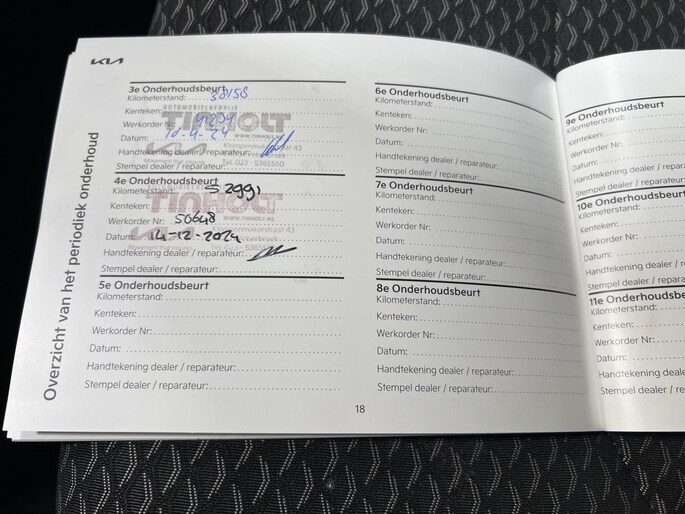 KIA
Overzicht van het periodiek onderhoud
3e Onderhoudsbeurt
Kilometerstand: 38158
Kenteken:
Werkorder Nr:
Datum: 10-4-24
Handtekening dealer / reparateur:
Stempel dealer / reparateur:
AUTOMOBIELBEDRIJF
TINHOLT
WWW.TINHOLT.NL
4e Onderhoudsbeurt
Kilometerstand: 52991
Kenteken:
Werkorder Nr: 50648
Datum: 14-12-2024
Handtekening dealer / reparateur:
Stempel dealer / reparateur:
TINHOLT
WWW.TINHOLT.NL
5e Onderhoudsbeurt
Kilometerstand:
Kenteken:
Werkorder Nr:
Datum:
Handtekening dealer / reparateur:
Stempel dealer / reparateur:
6e Onderhoudsbeurt
Kilometerstand:
Kenteken:
Werkorder Nr:
Datum:
Handtekening dealer / reparateur:
Stempel dealer / reparateur:
7e Onderhoudsbeurt
Kilometerstand:
Kenteken:
Werkorder Nr:
Datum:
Handtekening dealer / reparateur:
Stempel dealer / reparateur:
8e Onderhoudsbeurt
Kilometerstand:
Kenteken:
Werkorder Nr:
Datum:
Handtekening dealer / reparateur:
Stempel dealer / reparateur:
18
9e Onderhoudsbeurt
Kilometerstand:
Kenteken:
Werkorder Nr:
Datum:
Handtekening dealer / r
Stempel dealer / repara
10e Onderhoudsbeurt
Kilometerstand:
Kenteken:
Werkorder Nr:
Datum:
Handtekening dealer / r
Stempel dealer / repar
11e Onderhoudsbe
Kilometerstand:
Kenteken:
Werkorder Nr:
Datum:
Handtekening dealer /
Stempel dealer / re